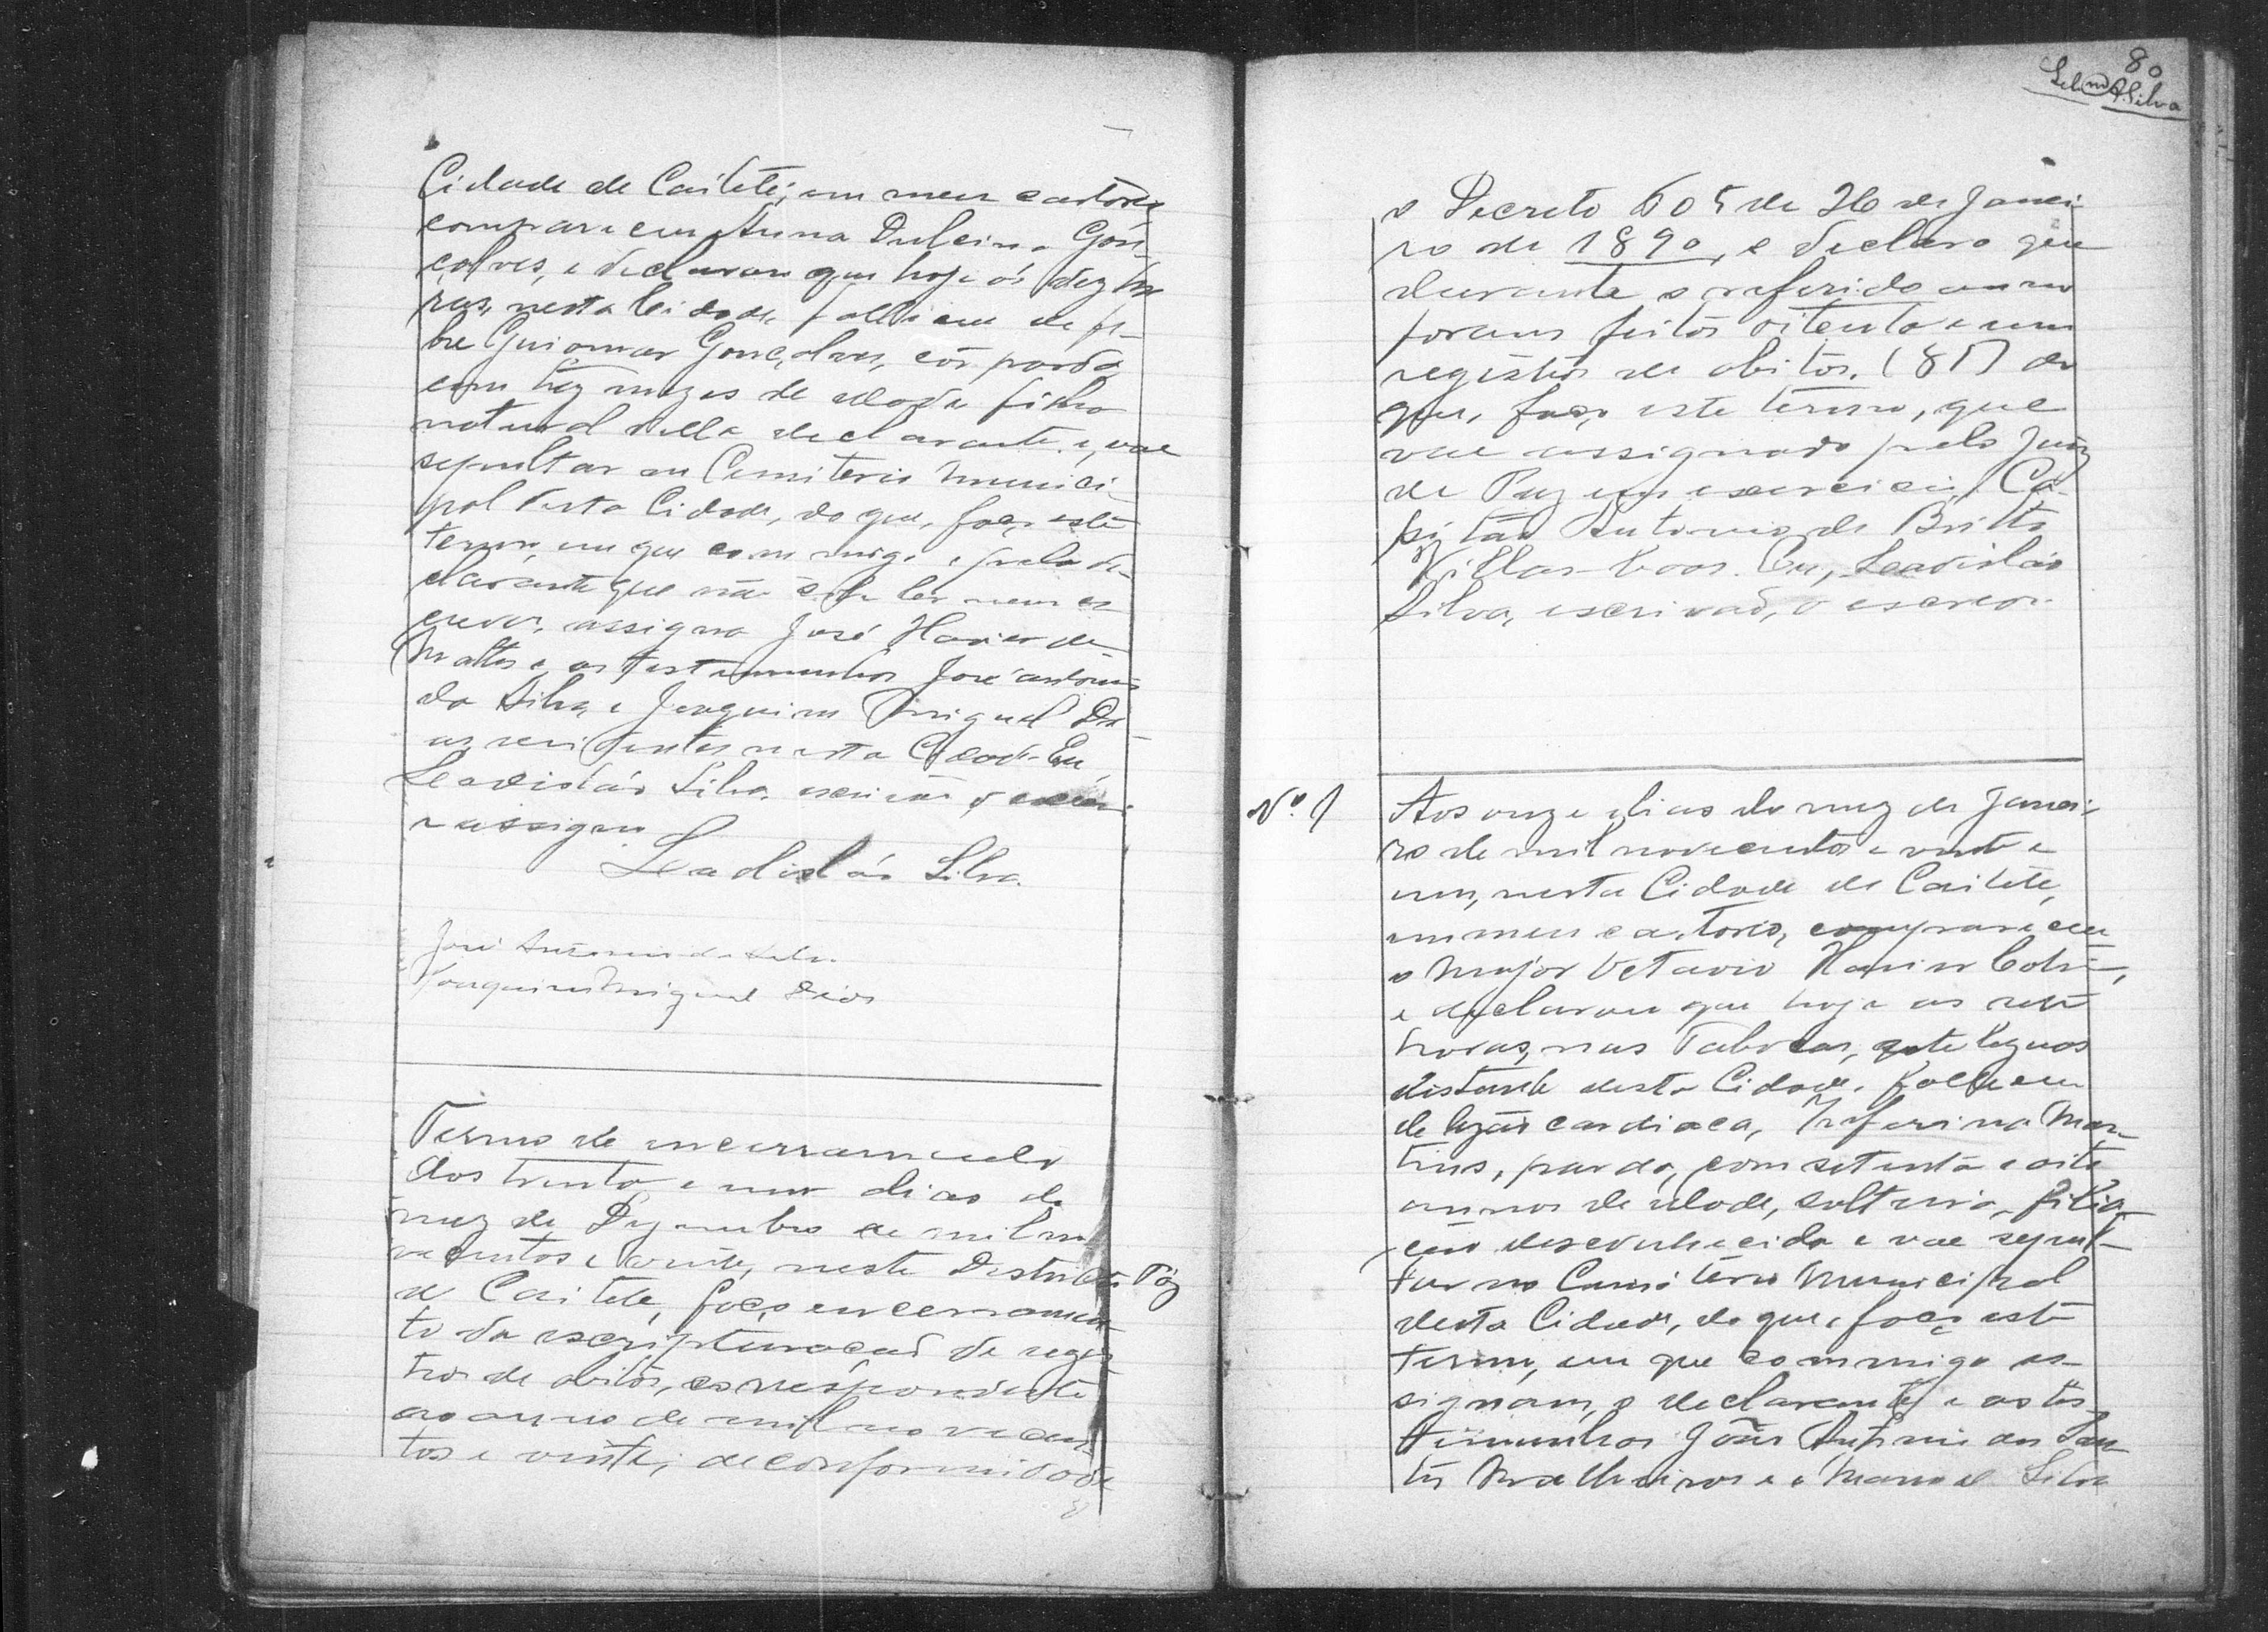 Cidade de Caiteté; em meu cartorio
compareceu Anna Dulcina Gon-
çalves, e declarou que hoje ás dez ho
ras, nesta Cidade, falleceu de fe-
bre Guiomar Gonçalves, côr parda
com trez mezes de edade filha
natural della declarante e, vae
sepultar no Cemiterio Munici-
pal desta Cidade, do que, faço este
termo, em que commigo e pela de-
clarante que não sabe ler nem es
crever, assigna José Xavier de
Mattos e as testemunhas José Antonio
da Silva e Joaquim Miguel Di
as, residentes nesta Cidade. Eu,
Leadislás Silva, escrivão o escrevi
e assigno
Leadislás Silva.
José Antonio da Silva
Joaquim Miguel Dias
Termo de encerramento
Aos trinta e um dias do
mez de Dezembro de mil no
vecentos e vinte, neste Districto Páz
de Caiteté, faço encerramen-
to da escripturação de regis
tros de obitos, correspondente
ao anno de mil novecen-
tos e vinte; de conformidade
80
A. Silva
o Decreto 605 de 26 de Janei-
ro de 1890, e declaro que
durante o referido anno
foram feitos oitenta e um
registros de obitos. (81) do
que, faço este termo, que
vae assignado pelo Juiz
de Paz em exercicio, Ca-
pitão Antonio de Britto
Villas-boas. Eu, Leadislás
Silva, escrivão, o escrevi.
Nº. 1
Aos onze dias do mez de Janei-
ro de mil novecentos e vinte e
um, nesta Cidade de Caiteté,
em meu cartorio, compareceu
o Major Octavio Xavier Cotri-,
e declarou que hoje as sete
horas, nas Tabocas, sete leguas
distante desta Cidade. falleceu
de lezão cardiaca, Zeferina Mar-
tins, parda, com setenta e oito
annos de edade, solteira, filia-
ção desconhecida e vae sepul-
tar no Cemiterio Municipal
desta Cidade, do que, faço este
termo, em que commigo as-
signam, o declarante e as tes-
temunhas João Antonio dos San
tos Malheiros e Manoel Silva